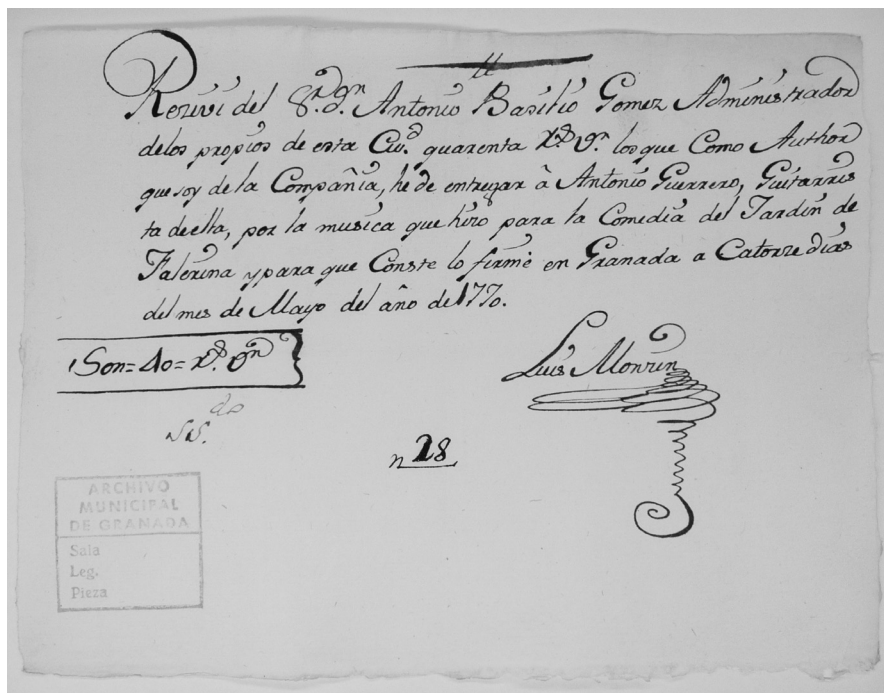 Rezivi del S.r D.n Antonio Basilio Gomez Administrador
de los propios de esta Ciu.d quarenta r.s v.n los que Como Author
que soy de la Compañia, he de entregar â Antonio Guerrero, Guitarris
ta de ella, por la musica que hizo para la Comedia del Jardin de
Falerina y para que Conste lo firmè en Granada a Catorze dias
del mes de Mayo del año de 1770.
Son= 40= r.s v.n
Luis Monzin
n 28
ARCHIVO
MUNICIPAL
DE GRANADA
Sala
Leg.
Pieza